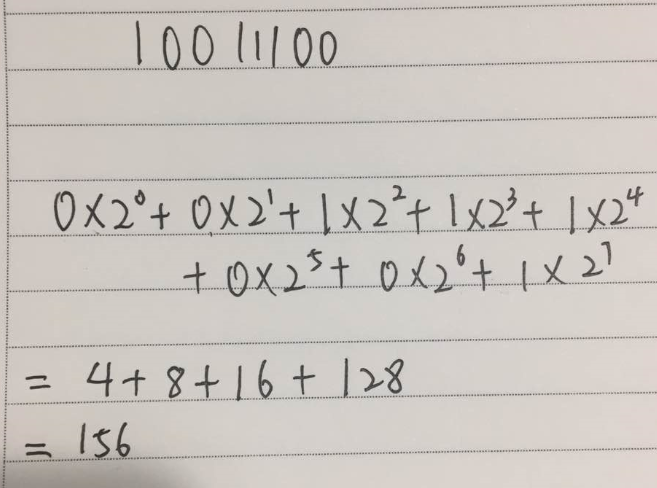 10011100
0×2⁰+ 0×2¹+ 1×2²+ 1×2³+ 1×2⁴
+ 0×2⁵+ 0×2⁶+ 1×2⁷
= 4+8+16+128
= 156